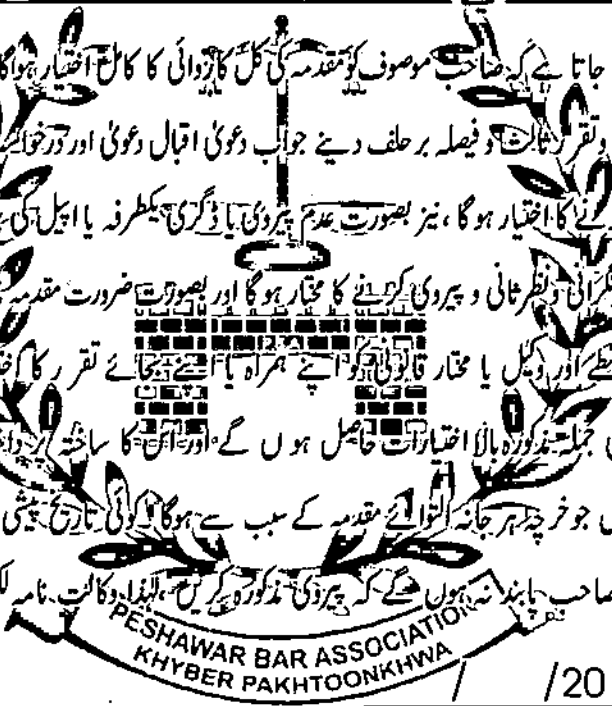 جاتا ہے کہ صاحب موصوف کو مقدمہ کی کل کاروائی کا کامل اختیار ہوگا
وتقرر ثالث و فیصلہ بر حلف دینے جواب دعویٰ اقبال دعویٰ اور
کا اختیار ہو گا ، نیز بصورت عدم پیروی یا ڈگری یکطرفہ یا اپیل کی
نگرانی و نظر ثانی و پیروی کرنے کا مختار ہو گا اور بصورت ضرورت مقدمہ
اور وکیل یا مختار قانونی کو اپنے ہمراہ یا اپنے بجائے تقرر کا
جملہ مذکورہ بالا اختیارات حاصل ہوں گے اور اس کا ساختہ
جو خرچہ ہرجانہ التوائے مقدمہ کے سبب سے ہوگا کوئی تاریخ پیشی
صاحب پابند نہ ہوں گے کہ پیروی مذکورہ کریں ، لہٰذا وکالت نامہ
PESHAWAR BAR ASSOCIATION
KHYBER PAKHTOONKHWA
/ /20